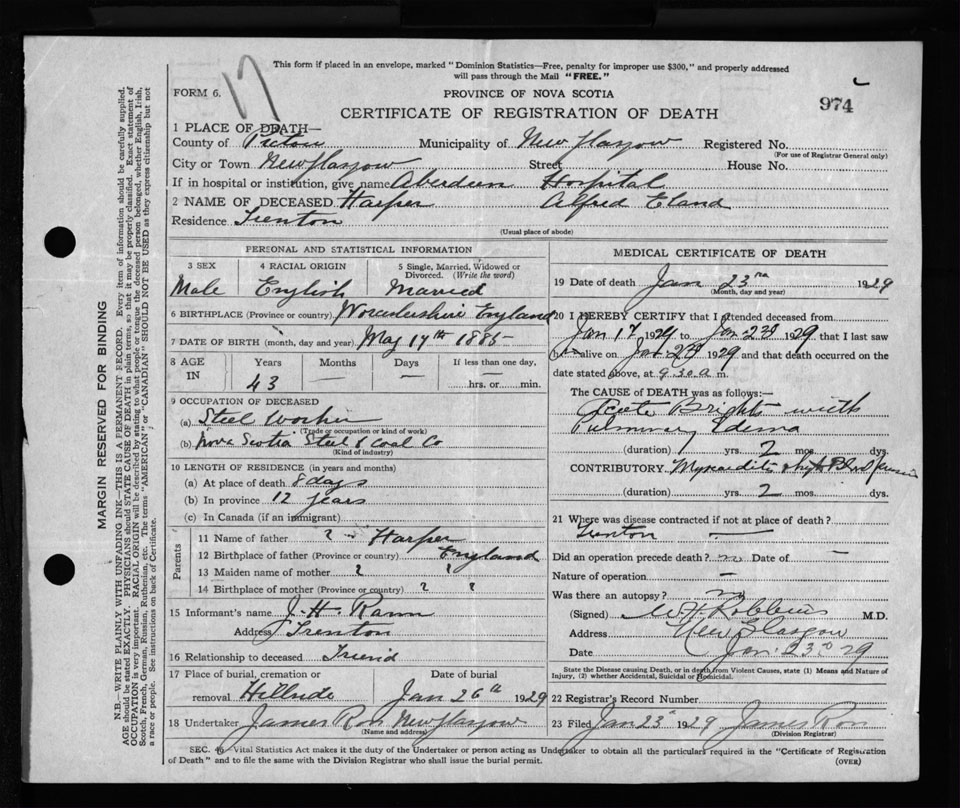 17
This form if placed in an envelope, marked "Dominion Statistics—Free, penalty for improper use $300," and properly addressed
will pass through the Mail "FREE."
FORM 6.
PROVINCE OF NOVA SCOTIA
974
CERTIFICATE OF REGISTRATION OF DEATH
1 PLACE OF DEATH—
County of Pictou Municipality of New Glasgow Registered No.
(For use of Registrar General only)
City or Town New Glasgow Street House No.
If in hospital or institution, give name Aberdeen Hospital
2 NAME OF DECEASED Harper Alfred Eland
Residence Trenton
(Usual place of abode)
PERSONAL AND STATISTICAL INFORMATION
3 SEX 4 RACIAL ORIGIN 5 Single, Married, Widowed or
Divorced. (Write the word)
Male English Married
6 BIRTHPLACE (Province or country) Worcestershire England
7 DATE OF BIRTH (month, day and year) May 14th 1885
8 AGE Years Months Days If less than one day,
IN 43 hrs. or min.
9 OCCUPATION OF DECEASED
(a) Steel Worker
(Trade or occupation or kind of work)
(b) Nova Scotia Steel & Coal Co
(Kind of industry)
10 LENGTH OF RESIDENCE (in years and months)
(a) At place of death 8 days
(b) In province 12 years
(c) In Canada (if an immigrant)
Parents
11 Name of father ? Harper
12 Birthplace of father (Province or country) England
13 Maiden name of mother ? ?
14 Birthplace of mother (Province or country) ? ?
15 Informant's name J. H. Rann
Address Trenton
16 Relationship to deceased Friend
17 Place of burial, cremation or Date of burial
removal Hillside Jan 26th 1929
18 Undertaker James Ross New Glasgow
(Name and address)
MEDICAL CERTIFICATE OF DEATH
19 Date of death Jan 23rd 1929
(Month, day and year)
20 I HEREBY CERTIFY that I attended deceased from
Jan 17 1929 to Jan 23d 1929 that I last saw
him alive on Jan 1929 and that death occurred on
date stated above, at 9.30 a m.
The CAUSE OF DEATH was as follows:—
Acute Brights with
Pulmonary Edema
(duration) yrs. 2 mos. dys.
CONTRIBUTORY Myocarditis
(duration) yrs. 2 mos. dys.
21 Where was disease contracted if not at place of death?
Trenton —
Did an operation precede death? no Date of —
Nature of operation —
Was there an autopsy? no
(Signed) M.D.
Address New Glasgow
Date Jan. 23d 29
State the Disease causing Death, or in death from Violent Causes, state (1) Means and Nature of
Injury, (2) whether Accidental, Suicidal or Homicidal.
22 Registrar's Record Number
23 Filed Jan 23d 1929 James Ross
(Division Registrar)
SEC. Vital Statistics Act makes it the duty of the Undertaker or person acting as Undertaker to obtain all the particulars required in the "Certificate of Registration
of Death" and to file the same with the Division Registrar who shall issue the burial permit. (OVER)
MARGIN RESERVED FOR BINDING
N.B.—WRITE PLAINLY WITH UNFADING INK—THIS IS A PERMANENT RECORD. Every item of information should be carefully supplied.
AGE should be stated EXACTLY. PHYSICIANS should STATE CAUSE OF DEATH in plain terms, so that it may be properly classified. Exact statement of
OCCUPATION is very important. RACIAL ORIGIN will be described by stating to what people or tongue the deceased person belonged, whether English, Irish,
Scotch, French, German, Russian, Ruthenian, etc. The terms "AMERICAN" or "CANADIAN" SHOULD NOT BE USED as they express citizenship but not
a race or people. See instructions on back of Certificate.